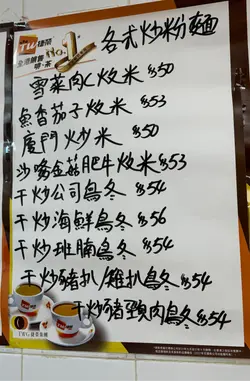 TW 捷榮
各式炒粉麵
全港銷量
啡·茶
No.1
雪菜肉C炆米 $50
魚香茄子炆米 $53
廈門炒米 $50
沙嗲金菇肥牛炆米 $53
干炒公司烏冬 $54
干炒海鮮烏冬 $56
干炒班腩烏冬 $54
干炒豬扒/雞扒烏冬 $54
干炒豬頸肉烏冬 $54